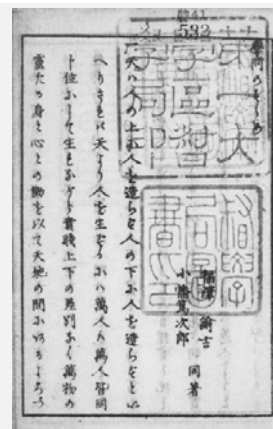 532
學問のすゝめ
福澤諭吉
小幡篤次郎 同著
天ハ人の上に人を造らず人の下に人を造らずと云
へりされバ天より人を生ずるにハ萬人ハ萬人皆同
じ位にして生れながら貴賤上下の差別なく萬物の
霊たる身と心との働を以て天地の間にあるよろづ